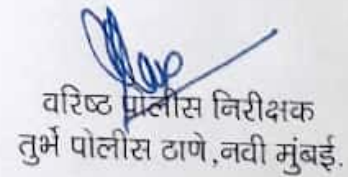 वरिष्ठ पोलीस निरीक्षक
तुर्भे पोलीस ठाणे ,नवी मुंबई.